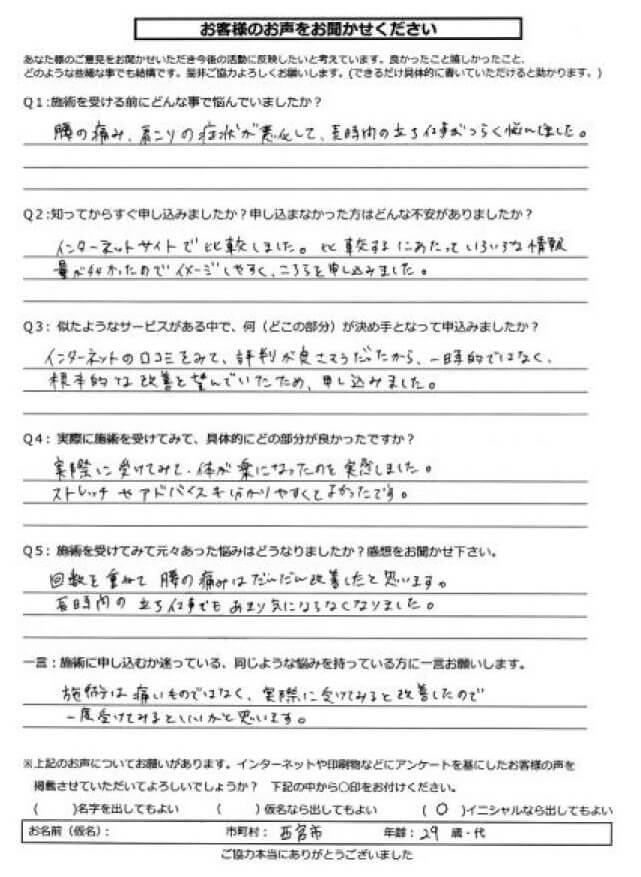 お客様のお声をお聞かせください
あなた様のご意見をお聞かせいただき今後の活動に反映したいと考えています。良かったこと嬉しかったこと、
どのような些細な事でも結構です。是非ご協力よろしくお願いします。(できるだけ具体的に書いていただけると助かります。)
Q1:施術を受ける前にどんな事で悩んでいましたか?
腰の痛み、肩こりの症状が悪化して、長時間の立ち仕事がつらく悩んでました。
Q2:知ってからすぐ申し込みましたか?申し込まなかった方はどんな不安がありましたか?
インターネットサイトで比較しました。比較するにあたっていろいろな情報
量が多かったのでイメージしやすく、こちらを申し込みました。
Q3:似たようなサービスがある中で、何(どこの部分)が決め手となって申込みましたか?
インターネットの口コミをみて、評判が良さそうだったから、一時的ではなく、
根本的な改善を望んでいたため、申し込みました。
Q4:実際に施術を受けてみて、具体的にどの部分が良かったですか?
実際に受けてみて、体が楽になったのを実感しました。
ストレッチやアドバイスも分かりやすくてよかったです。
Q5:施術を受けてみて元々あった悩みはどうなりましたか?感想をお聞かせ下さい。
回数を重ねて腰の痛みはだんだん改善したと思います。
長時間の立ち仕事でもあまり気にならなくなりました。
一言:施術に申し込むか迷っている、同じような悩みを持っている方に一言お願いします。
施術は痛いものではなく、実際に受けてみると改善したので
一度受けてみるといいかと思います。
※上記のお声についてお願いがあります。インターネットや印刷物などにアンケートを基にしたお客様の声を
掲載させていただいてよろしいでしょうか? 下記の中から〇印をお付けください。
( )名字を出してもよい ( )仮名なら出してもよい (〇)イニシャルなら出してもよい
お名前(仮名): 市町村:西宮市 年齢:29 歳・代
ご協力本当にありがとうございました